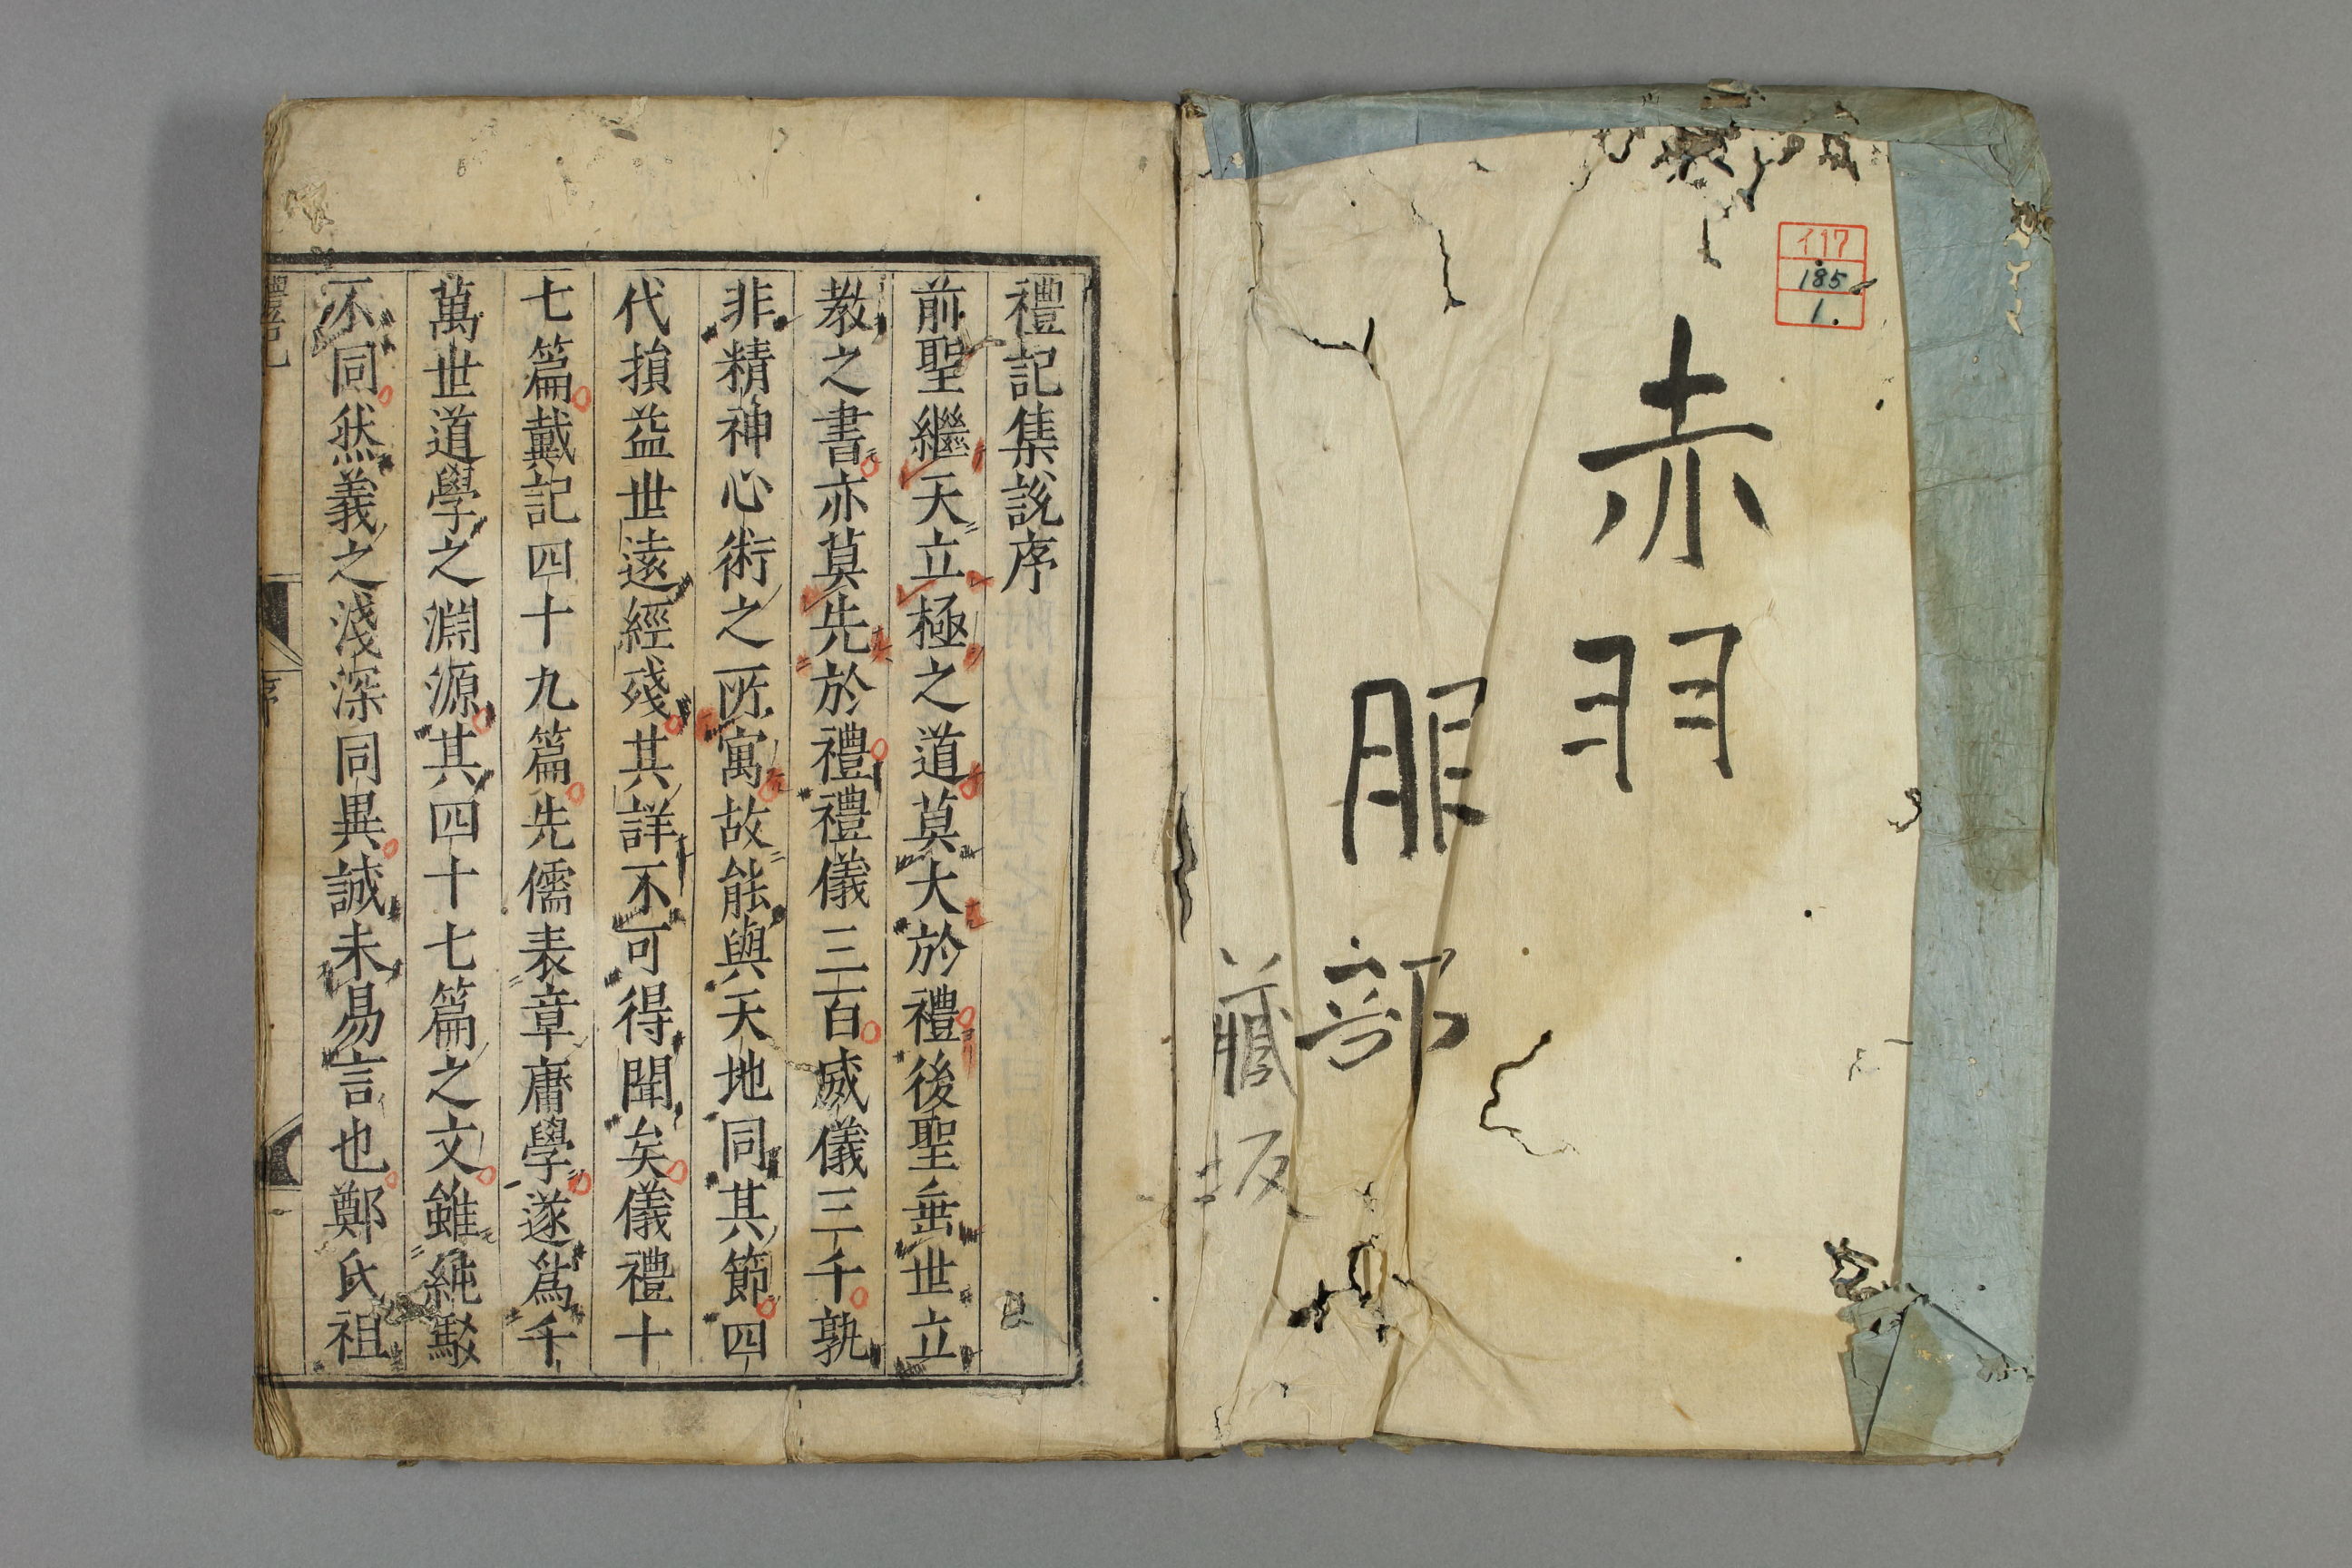 イ17
185
1
赤羽
服部
藏坂
禮記集説序
前聖繼天立極之道莫大於禮後聖垂世立
教之書亦莫先於禮禮儀三百威儀三千孰
非精神心術之所寓故能與天地同其節四
代損益世遠經殘其詳不可得聞矣儀禮十
七篇戴記四十九篇先儒表章庸學遂爲千
萬世道學之淵源其四十七篇之文雖純駁
不同然義之淺深同異誠未易言也鄭氏祖
禮記
序